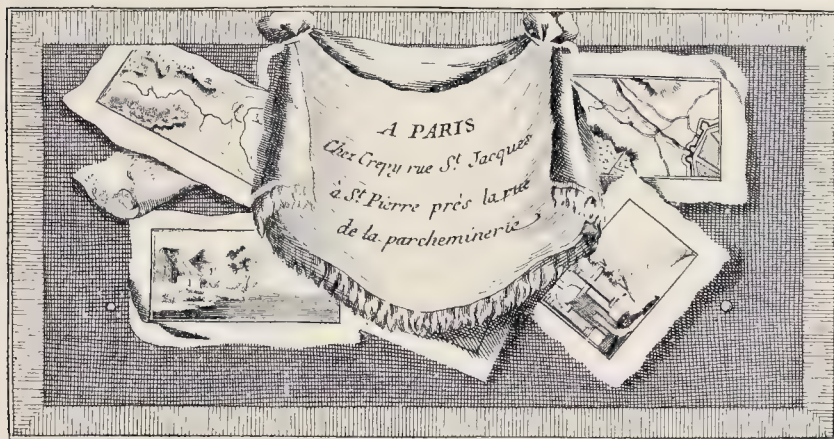 A PARIS
Chez Crepy rue St. Jacques
à St. Pierre prés la rue
de la parcheminerie